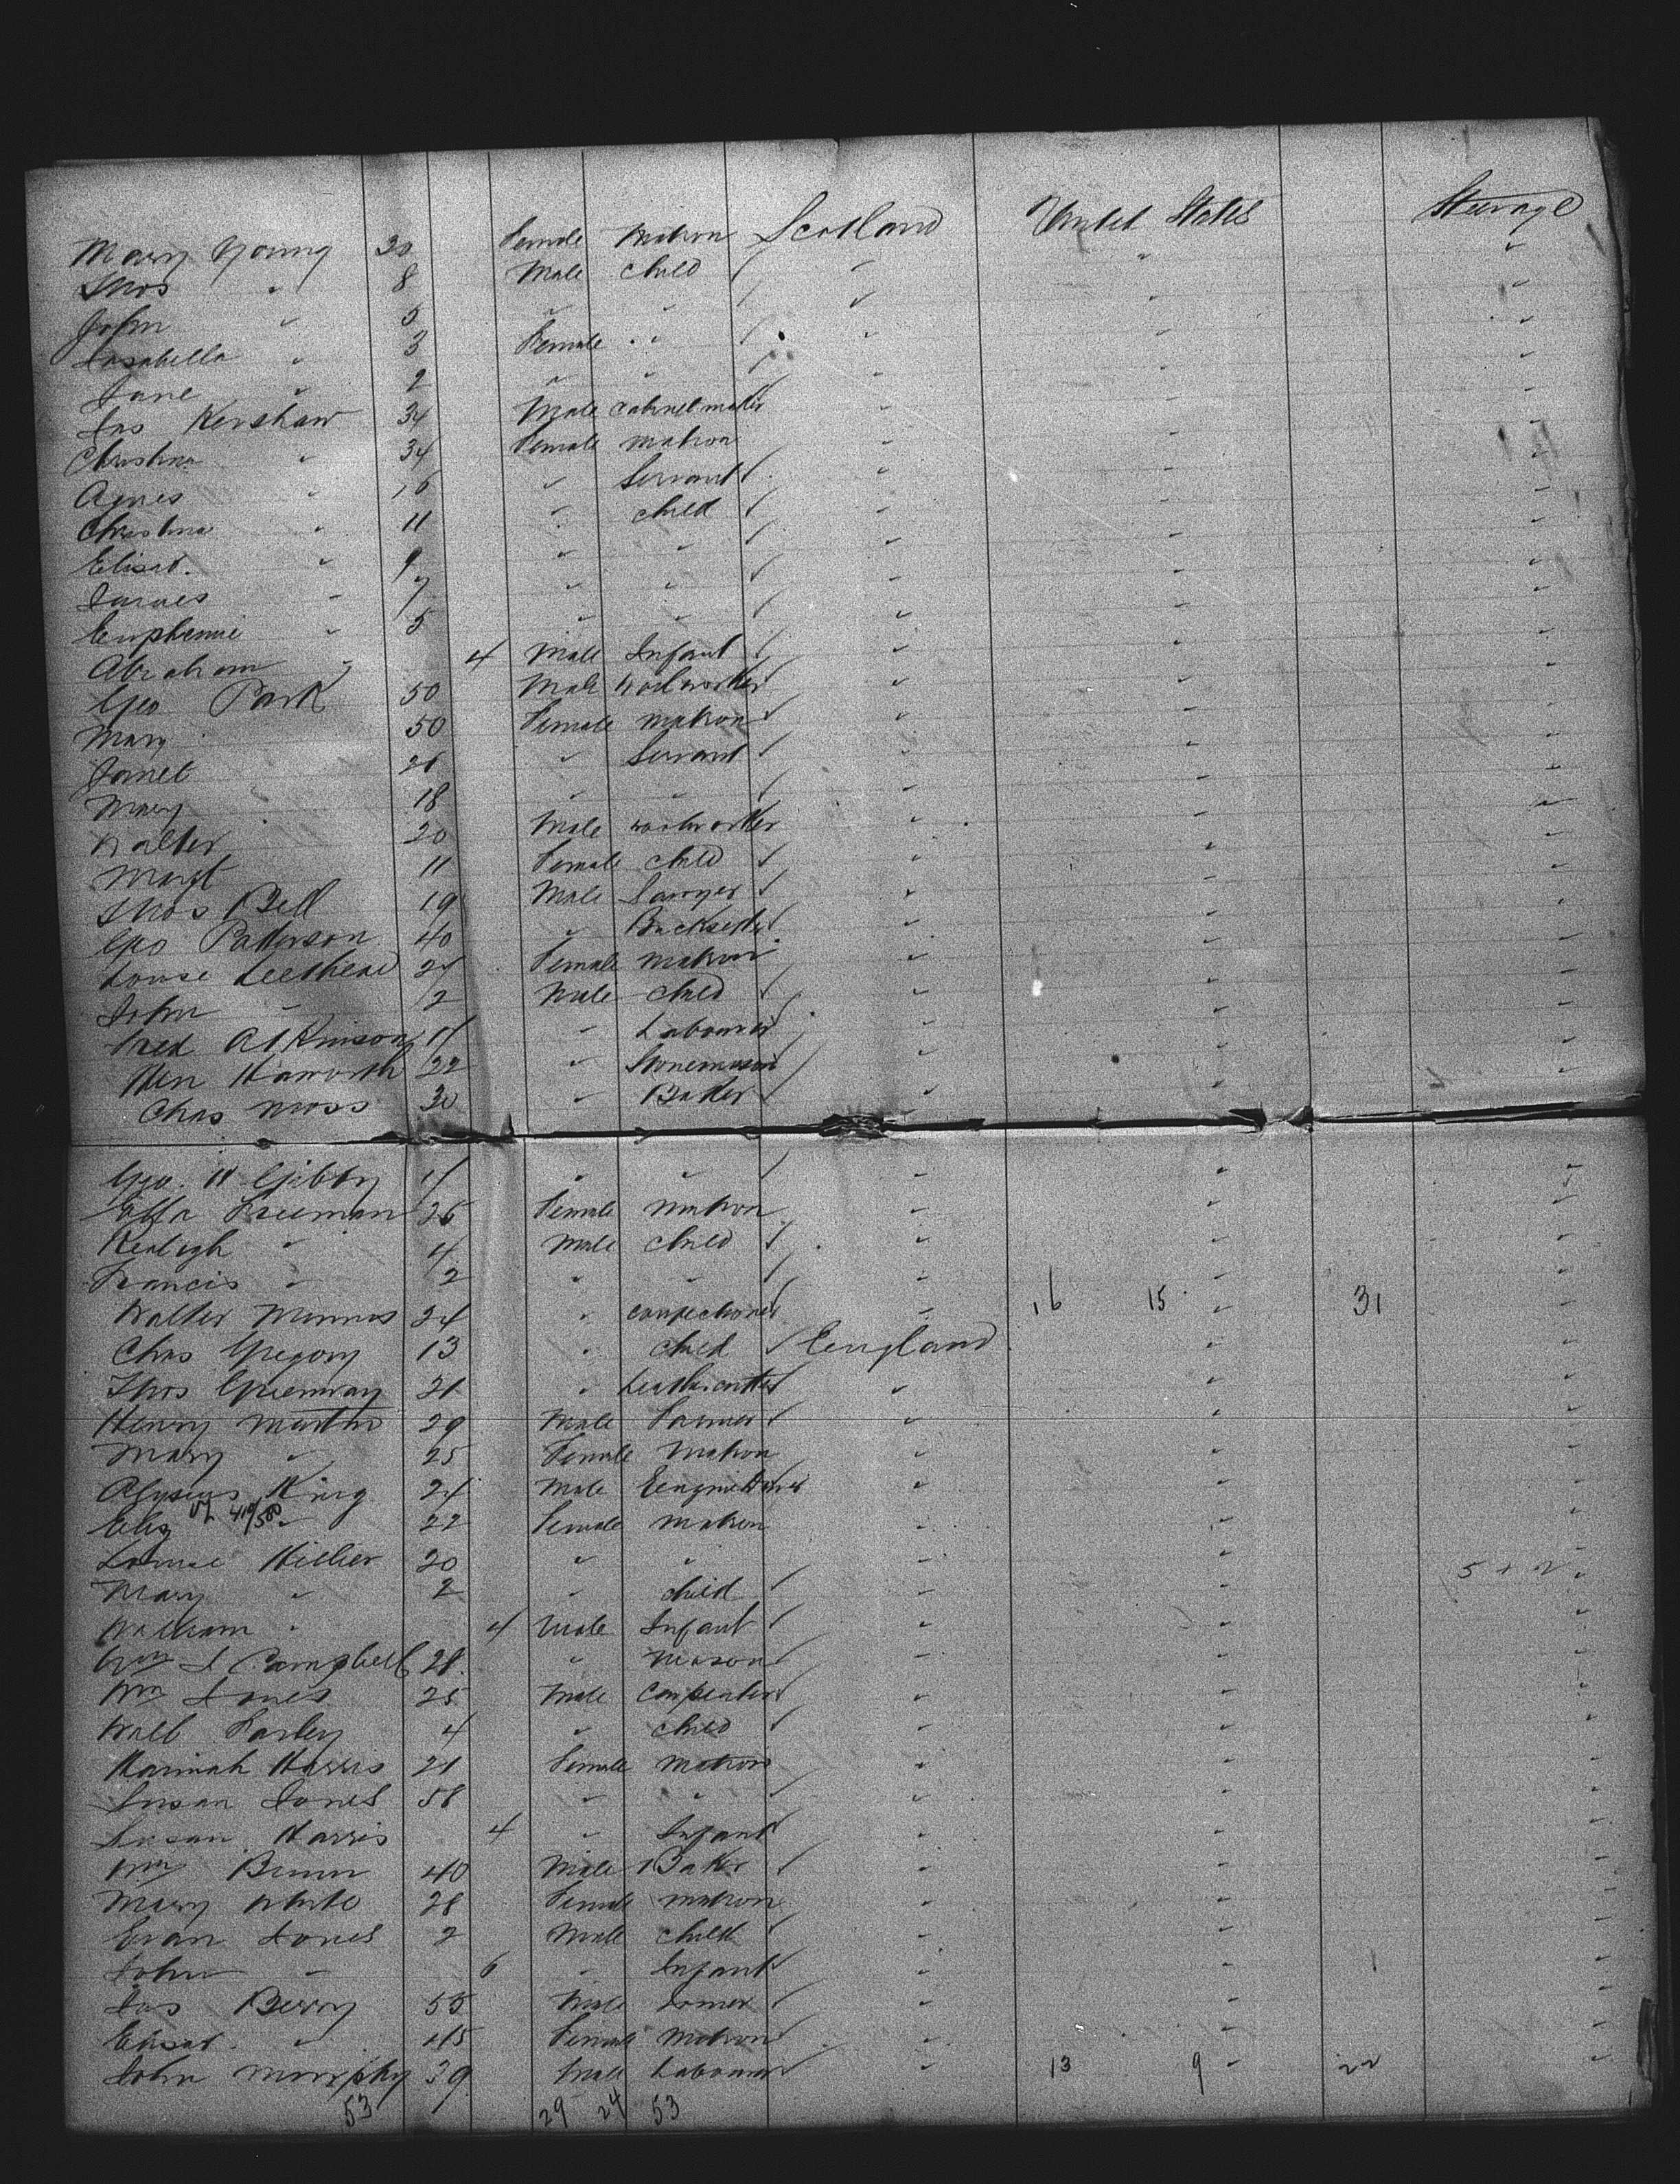 Mary Young 30 Female Matron Scotland United States Steerage
Thos " 8 Male Child " " "
John " 5 " " " " "
Issabella " 3 Female " " " "
Jane " 2 " " " " "
Jas Kershaw 34 Male Cabinetmaker " " "
Christina " 34 Female Matron " " "
Agnes " 16 " Servant " " "
Christina " 11 " Child " " "
Elisat. " 9 " " " " "
James " 7 " " " " "
Euphemie " 5 " " " " "
Abraham " 4 Male Infant " " "
Geo Park 50 Male Woolworker " " "
Mary 50 Female Matron " " "
Janet 26 " Servant " " "
Mary 18 " " " " "
Walter 20 Male Woolworker " " "
Margt 11 Female Child " " "
Thos Bell 19 Male Sawyer " " "
Geo Paterson 40 " " " "
Louse Leethead 27 Female Matron " " "
John " 2 Male Child " " "
Fred Atkinson " Labourer " " "
Hen Haworth 22 " Stonemason " " "
Chas Moss 30 " Baker " " "
Geo. H Gibby " " " " "
Ella Freeman 26 Female Matron " " "
Realigh " 4 Male Child " " "
Francis " 2 " " " " "
Walter Minnus 24 " Confectioner " 16 15 " 31 "
Chas Gregory 13 " Child England " "
Thos Greenway 21 " Leathercutter " " "
Henry Martin 29 Male Farmer " " "
Mary " 25 Female Matron " " "
King 24 Male Enginedriver " " "
Eliz " 22 Female Matron " " "
Louise Hillier 20 " " " " "
Mary " 2 " Child " " 5 + 2 "
William " 4 Male Infant " " "
Wm S Campbell 28 " Mason " " "
Wm Jones 25 Male Carpenter " " "
Walt Farley 4 " Child " " "
Hannah Harris 21 Female Matron " " "
Susan Jones 58 " " " " "
Susan Harris 4 " Infant " " "
Wm Bunn 40 Male Baker " " "
Mary White 28 Female Matron " " "
Evan Jones 2 Male Child " " "
John " 6 " Infant " " "
Jas Berry 55 Male " " "
Elisat. " 45 Female Matron " " "
John Murphy 39 Male Labourer " 13 9 " 22 "
53 29 24 53